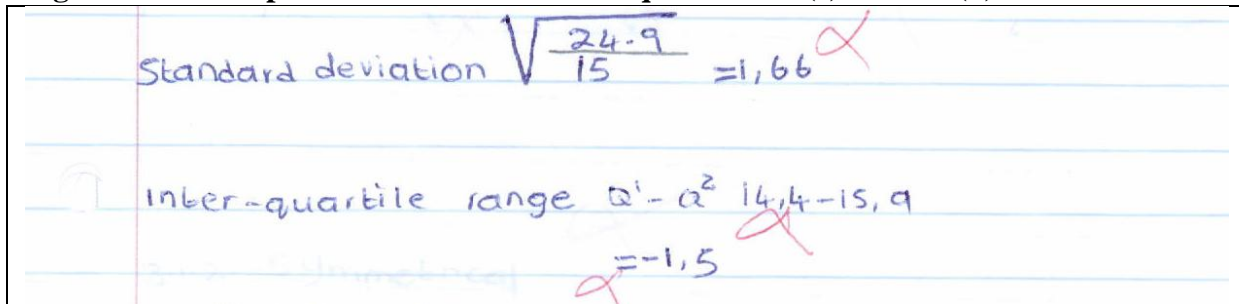 Standard deviation √24.9/15 =1,66
Inter-quartile range Q¹-Q² 14,4-15,9
=-1,5